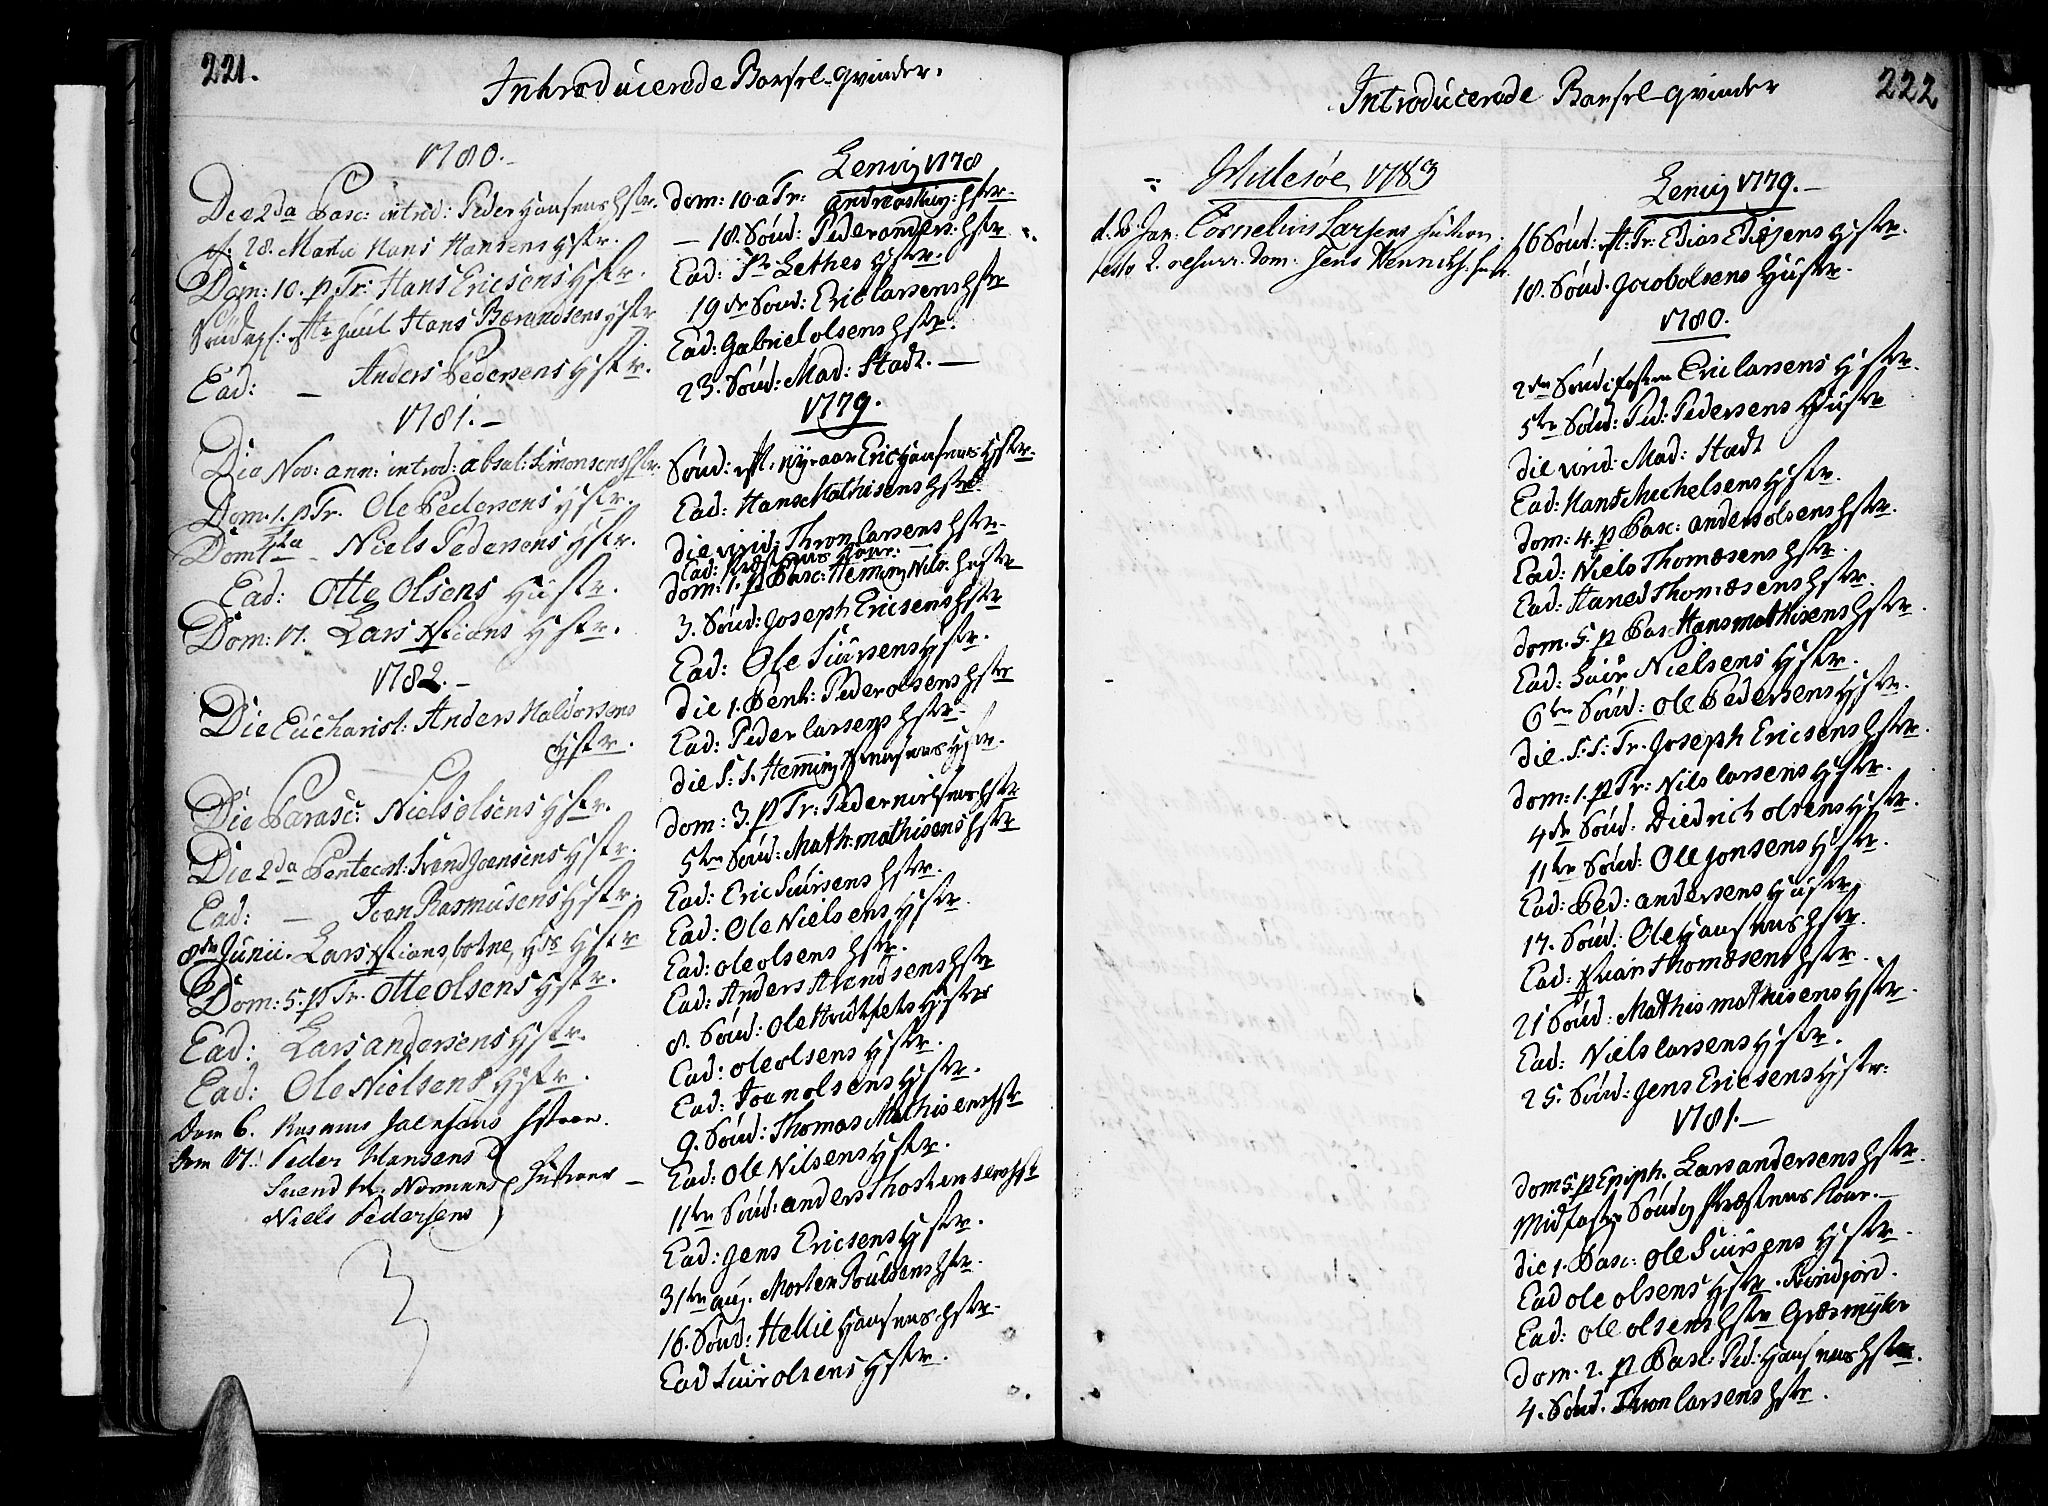 221.
Introducerede Barsel-qvinder.
1780.-
Die 2da Pasc: introd: Peder Hansens Hstr.
d. 28. Martii Hans Hansens Hstr.
Dom: 10. p Tr: Hans Ericsens Hstr.
Hans Berendsens Hstr
Ead: — Anders Pedersens Hstr.
1781.-
Die Nov: ann: introd: Absal: Simonsens Hstr.
Dom. 1. p Tr. Ole Pedersens Hstr.
Dom 7ta - Niels Pedersens Hstr.
Ead: Otte Olsens Hustr.
Dom: 17. Lars Xtians Hstr.
1782.-
Die Eucharist: Anders Haldorsens
Hstr.
Die Parasc: Niels Olsens Hstr.
Die 2da Pentecost: Svend Joensens Hstr.
Ead: — Joen Rasmusens Hstr.
8de Junii. Lars Xtians botne, Hds Hstr
Dom: 5. p Tr: Otte Olsens Hstr.
Ead: Lars Andersens Hstr.
Ead: Ole Nielsens Hstr.
Dom 6. Rasmus Joensens Hstroe.
Dom 17. Peder Hansens
Svend Normans Hustroer —
Niels Pedersens
Lenvig 1778
Dom: 10. a Tr: Andreas Hstr.
— 18. Sönd: Peder Anders. Hstr
Ead: Sr Lethes Hstr.
19de Sönd: Eric Larsens Hstr
Ead: Gabriel Olsens Hstr.
23. Sönd: Mad: Stadt. —
1779.
Sönd: Aft. nyeaar Eric Hansens Hstr.
Ead: Hans Mathisens Hstr.
Die virid: Thron Larsens Hstr.
Ead: Præstens Kone.
Dom: 1. p Pasc: Heming Nils. Hustr
3. Sönd: Joseph Ericsens Hstr
Ead: Ole Siursens Hstr.
Die 1. Pent: Peder Olsens Hstr
Ead: Peder Larsens Hstr.
Die S: S. Heming Hstr.
Dom: 3. p Tr: Peder Nielsens Hstr
5te Sönd: Math: Mathisens Hstr
Ead: Eric Siursens Hstr.
Ead: Ole Nielsens Hstr.
Ead: Ole Olsens Hstr.
Ead: Anders Arendsens Hstr
8. Sönd: Ole Hvidtfets Hstr
Ead: Ole Olsens Hstr.
Ead: Joen Olsens Hstr.
9. Sönd: Thomas Mathisens Hstr
Ead: Ole Nilsens Hstr.
11te Sönd: Anders Thostensens Hstr
Ead: Jens Ericsens Hstr.
31te aug. Morten Poulsens Hstr.
16. Sönd: Hellie Hansens Hstr.
Ead Siur Olsens Hstr.
222
Introducerede Barsel-qvinder
Hillesøe, 1783
Jan: Cornelius Larsens Hustroe.
Dom. Jens Hennichs. Hustr.
Lenvig 1779.-
16 Sönd: Aft. Tr. Edias Ediesens Hstr.
18. Sönd. Jacob Olsens Hustr.
1780.
2den Sönd i fasten Eric Larsens Hstr.
5te Sönd: Ped: Pedersens Hustr
Die virid: Mad: Stadt
Ead: Hans Michelsens Hstr.
Dom: 4. p Pasc: Anders Olsens Hstr.
Ead: Niels Thomæsens Hstr.
Ead: Haned Thomæsens Hstr.
Dom. 5. p Pasc Hans Mathisens Hstr.
Ead: Siur Nielsens Hstr.
6te Sönd: Ole Pedersens Hstr.
Die S: S: Tr. Joseph Ericsens Hstr.
Dom: 1. p Tr: Nils Larsens Hstr.
4de Sönd: Diedrich Olsens Hstr.
11te Sönd: Ole Jonsens Hstr.
Ead: Ped: Andersens Hustr
17. Sönd: Ole Hansens Hstr.
Ead: Thomæsens Hstr.
21 Sönd: Mathis Mathisens Hstr.
Ead: Niels Larsens Hstr.
25. Sönd: Jens Ericsens Hstr:
1781.-
Dom 5. p Epiph. Lars Andersens Hstr.
Midfaste Söndag Præstens Kone.-
Die 1. Pasc: Ole Siursens Hstr.
Ead Ole Olsens Hstr.
Ead: Ole Olsens Hstr Græsmyhr
Dom. 2. p Pasc: Ped: Hansens Hstr.
4. Sönd. Thron Larsens Hstr.